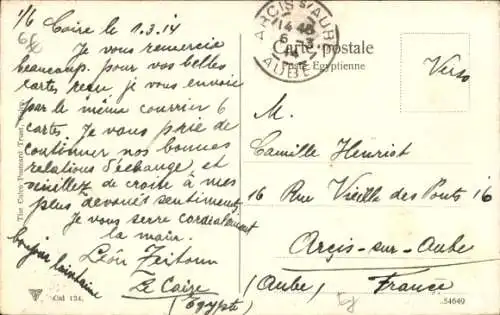 1/6
Caire le 1.3.14
Je vous remercie
beaucoup pour vos belles
cartes, reçu je vous envoie
par le même courrier 6
cartes. Je vous prie de
continuer nos bonnes
relations d'échange et
veuillez de croire à mes
plus devoués sentiments
Je vous serre cordialement
la main.
Léon Zeitoun
Le Caire
(Egypte)
bonjour lointaine
The Cairo Postcard Trust, Cairo
Cal 124.
ARCIS S/AUBE
14 45
6 - 3
14
AUBE
Carte postale
Poste Egyptienne
Verso
M.
Camille Henriot
16 Rue Vieille des Ponts 16
Arçis-sur-Aube
(Aube) France
54649